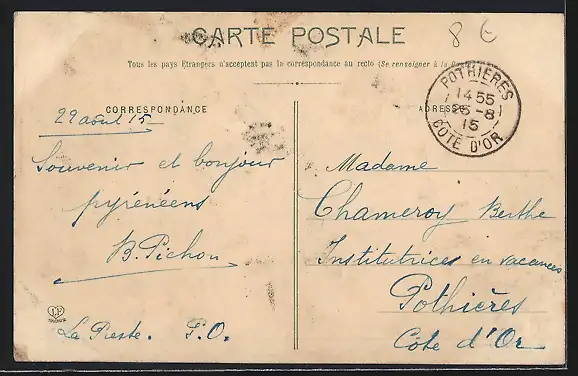 CARTE POSTALE
8 €
Tous les pays Étrangers n'acceptent pas la correspondance au recto (Se renseigner à la
CORRESPONDANCE
ADRESSE
POTHIERES
14 55
25 - 8
15
COTE D'OR
29 août 15
Souvenir et bonjour
pyrénéens
B. Pichon
La Preste. P.O.
Madame
Chameroy Berthe
Institutrices en vacances
Pothières
Côte d'Or